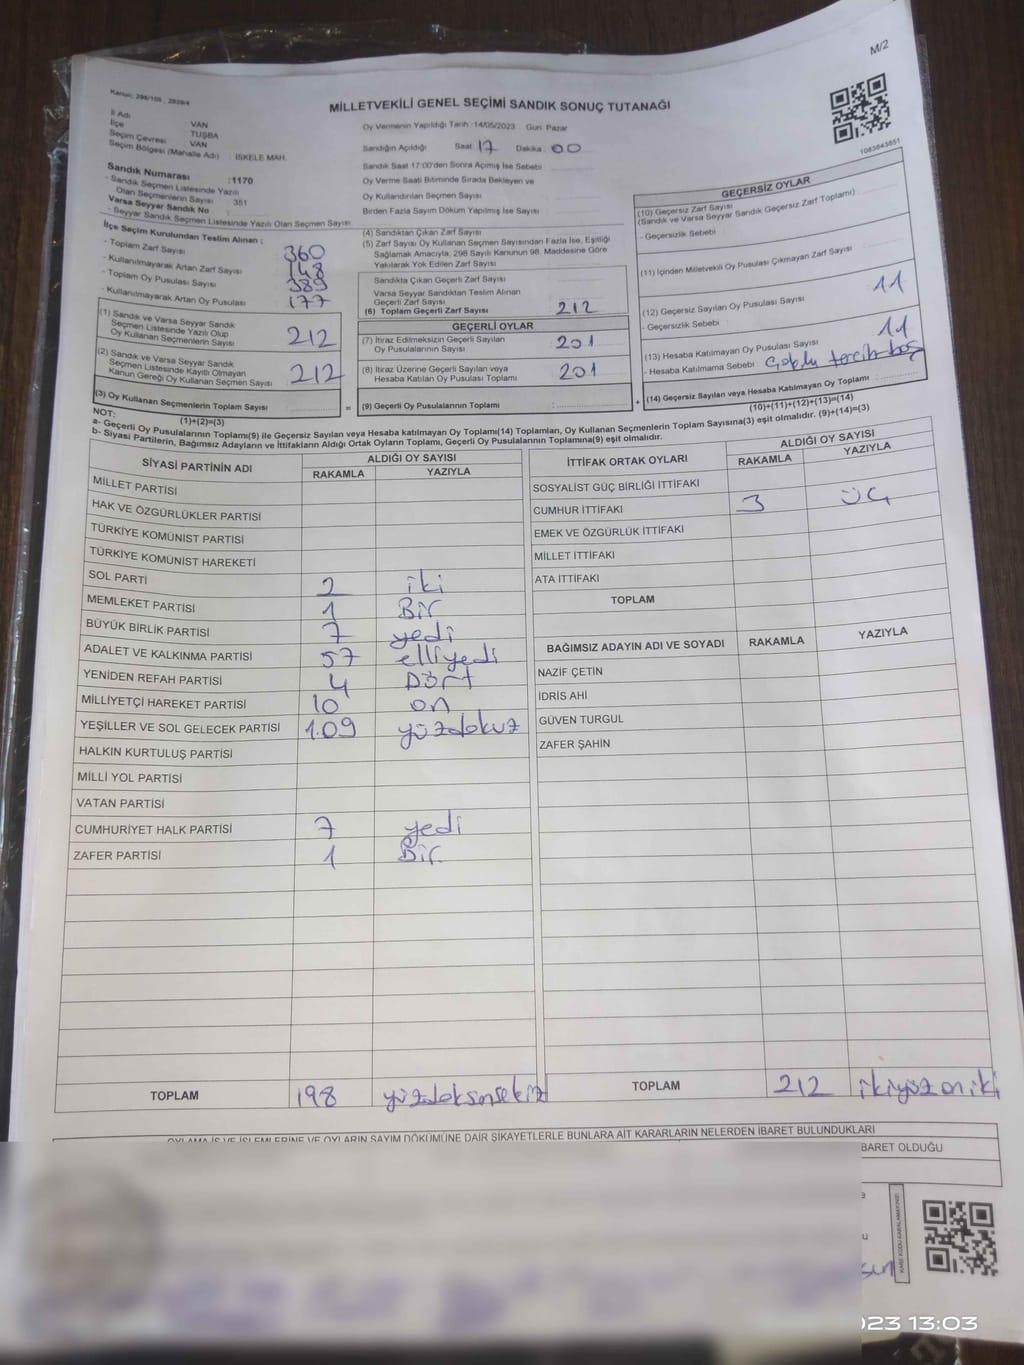 M/2
Kanun: 298/105 , 2839/4
MİLLETVEKİLİ GENEL SEÇİMİ SANDIK SONUÇ TUTANAĞI
1083643651
İl Adı VAN
İlçe TUŞBA
Seçim Çevresi VAN
Seçim Bölgesi (Mahalle Adı) : İSKELE MAH.
Sandık Numarası :1170
- Sandık Seçmen Listesinde Yazılı
Olan Seçmenlerin Sayısı 351
Varsa Seyyar Sandık No :
- Seyyar Sandık Seçmen Listesinde Yazılı Olan Seçmen Sayısı
Oy Vermenin Yapıldığı Tarih :14/05/2023 Gün: Pazar
Sandığın Açıldığı Saat 17 Dakika: 00
Sandık Saat 17:00'den Sonra Açımış İse Sebebi
Oy Verme Saati Bitiminde Sırada Bekleyen ve
Oy Kullandırılan Seçmen Sayısı
Birden Fazla Sayım Döküm Yapılmış İse Sayısı
İlçe Seçim Kurulundan Teslim Alınan :
- Toplam Zarf Sayısı 360
- Kullanılmayarak Artan Zarf Sayısı 148
- Toplam Oy Pusulası Sayısı 389
- Kullanılmayarak Artan Oy Pusulası 177
(1) Sandık ve Varsa Seyyar Sandık
Seçmen Listesinde Yazılı Olup
Oy Kullanan Seçmenlerin Sayısı 212
(2) Sandık ve Varsa Seyyar Sandık
Seçmen Listesinde Kayıtlı Olmayan
Kanun Gereği Oy Kullanan Seçmen Sayısı 212
(3) Oy Kullanan Seçmenlerin Toplam Sayısı
(1)+(2)=(3)
(4) Sandıktan Çıkan Zarf Sayısı
(5) Zarf Sayısı Oy Kullanan Seçmen Sayısından Fazla İse, Eşitliği
Sağlamak Amacıyla, 298 Sayılı Kanunun 98. Maddesine Göre
Yakılarak Yok Edilen Zarf Sayısı
Sandıkta Çıkan Geçerli Zarf Sayısı
Varsa Seyyar Sandıktan Teslim Alınan
Geçerli Zarf Sayısı
(6) Toplam Geçerli Zarf Sayısı 212
GEÇERLİ OYLAR
(7) İtiraz Edilmeksizin Geçerli Sayılan
Oy Pusulalarının Sayısı 201
(8) İtiraz Üzerine Geçerli Sayılan veya
Hesaba Katılan Oy Pusulası Toplamı 201
= (9) Geçerli Oy Pusulalarının Toplamı
GEÇERSİZ OYLAR
(10) Geçersiz Zarf Sayısı
(Sandık ve Varsa Seyyar Sandık Geçersiz Zarf Toplamı)
- Geçersizlik Sebebi
(11) İçinden Milletvekili Oy Pusulası Çıkmayan Zarf Sayısı
(12) Geçersiz Sayılan Oy Pusulası Sayısı 11
- Geçersizlik Sebebi
(13) Hesaba Katılmayan Oy Pusulası Sayısı 11
- Hesaba Katılmama Sebebi : tercih boş
+ (14) Geçersiz Sayılan veya Hesaba Katılmayan Oy Toplamı :
(10)+(11)+(12)+(13)=(14)
NOT:
a- Geçerli Oy Pusulalarının Toplamı(9) ile Geçersiz Sayılan veya Hesaba katılmayan Oy Toplamı(14) Toplamları, Oy Kullanan Seçmenlerin Toplam Sayısına(3) eşit olmalıdır. (9)+(14)=(3)
b- Siyasi Partilerin, Bağımsız Adayların ve İttifakların Aldığı Ortak Oyların Toplamı, Geçerli Oy Pusulalarının Toplamına(9) eşit olmalıdır.
SİYASİ PARTİNİN ADI ALDIĞI OY SAYISI
RAKAMLA YAZIYLA
MİLLET PARTİSİ
HAK VE ÖZGÜRLÜKLER PARTİSİ
TÜRKİYE KOMÜNİST PARTİSİ
TÜRKİYE KOMÜNİST HAREKETİ
SOL PARTİ 2 iki
MEMLEKET PARTİSİ 1 Bir
BÜYÜK BİRLİK PARTİSİ 7 yedi
ADALET VE KALKINMA PARTİSİ 57 elliyedi
YENİDEN REFAH PARTİSİ 4 Dört
MİLLİYETÇİ HAREKET PARTİSİ 10 on
YEŞİLLER VE SOL GELECEK PARTİSİ 109 yüzdokuz
HALKIN KURTULUŞ PARTİSİ
MİLLİ YOL PARTİSİ
VATAN PARTİSİ
CUMHURİYET HALK PARTİSİ 7 yedi
ZAFER PARTİSİ 1 Bir
TOPLAM 198 yüzdoksansekiz
İTTİFAK ORTAK OYLARI ALDIĞI OY SAYISI
RAKAMLA YAZIYLA
SOSYALİST GÜÇ BİRLİĞİ İTTİFAKI
CUMHUR İTTİFAKI 3 üç
EMEK VE ÖZGÜRLÜK İTTİFAKI
MİLLET İTTİFAKI
ATA İTTİFAKI
TOPLAM
BAĞIMSIZ ADAYIN ADI VE SOYADI RAKAMLA YAZIYLA
NAZİF ÇETİN
İDRİS AHİ
GÜVEN TURGUL
ZAFER ŞAHİN
TOPLAM 212 ikiyüzoniki
OYLAMA İŞ VE İŞLEMLERİNE VE OYLARIN SAYIM DÖKÜMÜNE DAİR ŞİKAYETLERLE BUNLARA AİT KARARLARIN NELERDEN İBARET BULUNDUKLARI
BARET OLDUĞU
KARE KODU KARALAMAYINIZ!
023 13:03